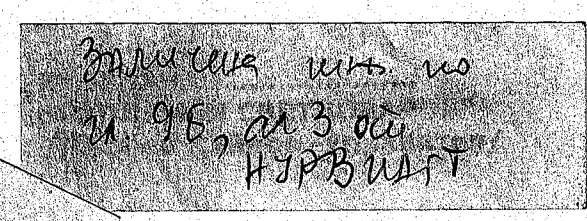 Заличена инф. по
чл. 9б, ал 3 от
НУРВИДГТ